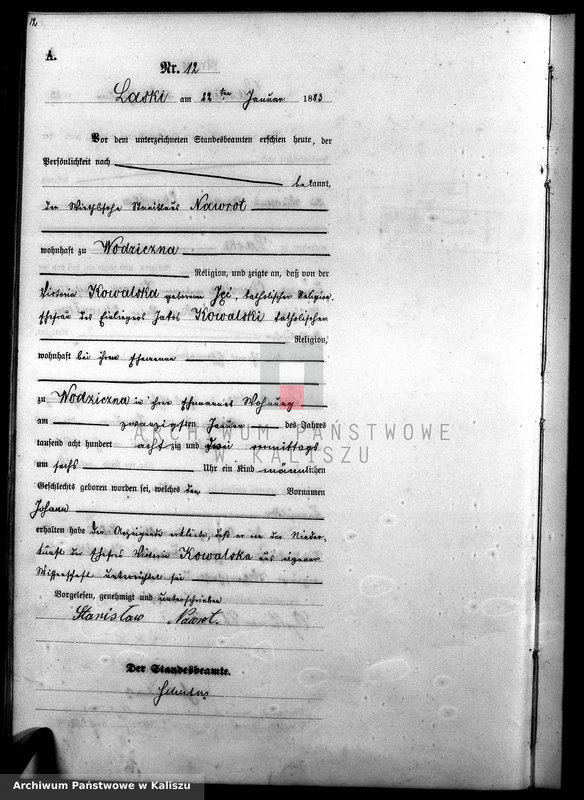 12
A.
Nr. 12
Laski am 22 ten Januar 1883
Vor dem unterzeichneten Standesbeamten erschien heute, der
Persönlichkeit nach
bekannt,
der Wirthssohn Stanislaus Nawrot
wohnhaft zu Wodziczna
Religion, und zeigte an, daß von der
Victoria Kowalska geborenen katholischer Religion
Ehefrau des Einliegers Kowalski katholischer
Religion,
wohnhaft bei ihrem Ehemanne
zu Wodziczna in ihrer Wohnung
am zwanzigsten Januar des Jahres
tausend acht hundert achtzig und drei Vormittags
um sechs Uhr ein Kind männlichen
Geschlechts geboren worden sei, welches den Vornamen
Johann
erhalten habe Der Anzeigende erklärte, daß er von der Nieder-
kunft der Ehefrau Victoria Kowalska aus eigener
Wissenschaft unterrichtet sei
Vorgelesen, genehmigt und unterschrieben
Stanisław Nawrot.
Der Standesbeamte.
ARCHIWUM PAŃSTWOWE
W KALISZU
Archiwum Państwowe w Kaliszu